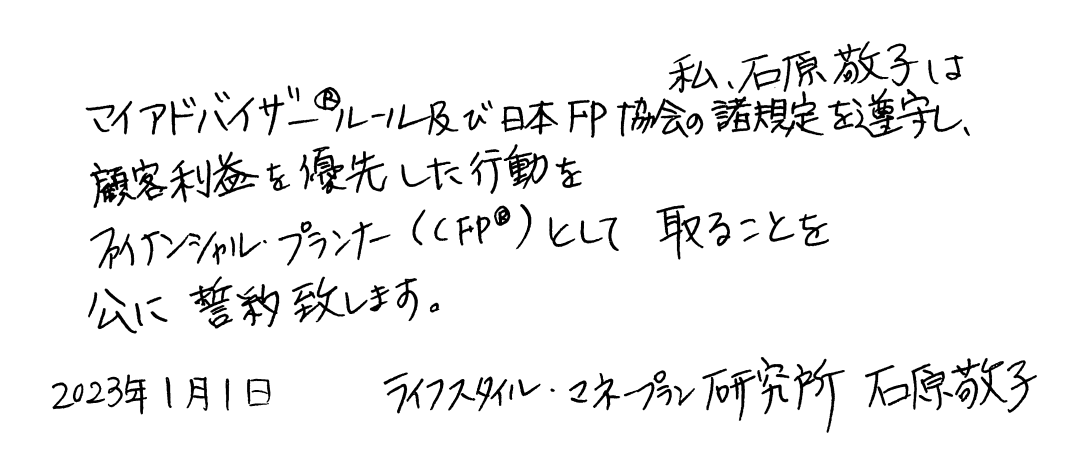 私、石原敬子は
マイアドバイザー®ルール及び日本FP協会の諸規定を遵守し、
顧客利益を優先した行動を
ファイナンシャル・プランナー(CFP®)として 取ることを
公に 誓約致します。
2023年1月1日 ライフスタイル・マネープラン研究所 石原敬子